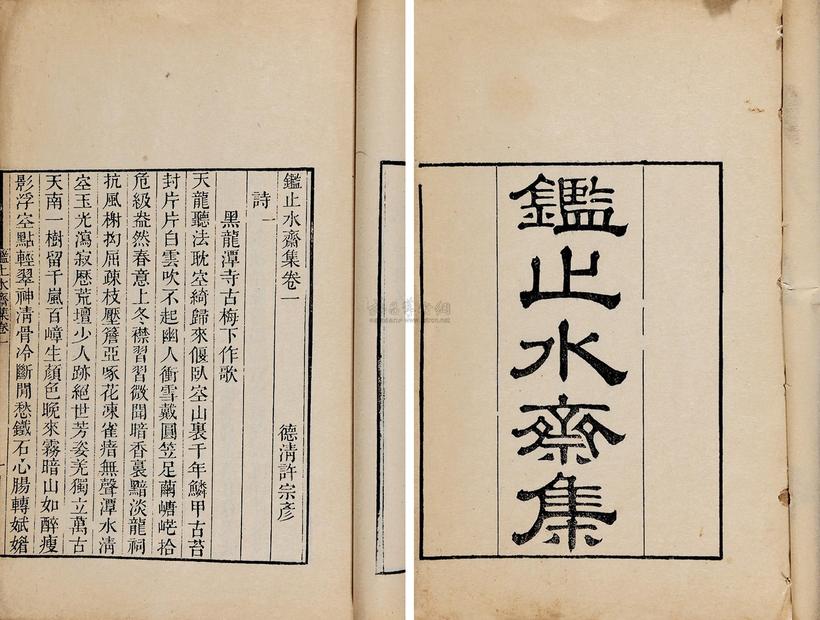 鑑止水齋集
鑑止水齋集卷一
德清許宗彥
詩一
黑龍潭寺古梅下作歌
天龍聽法耽空綺歸來偃臥空山裏千年鱗甲古苔
封片片白雲吹不起幽人衝雪戴圓笠足繭嵣㟐拾
危級盎然春意上冬襟習習微聞暗香裏黯淡龍祠
抗風榭拗屈疎枝壓簷亞啄花凍雀瘖無聲潭水清
空玉光瀉寂歴荒壇少人跡絕世芳姿羌獨立萬古
天南一樹留千嵐百嶂生顏色晚來霧暗山如醉瘦
影浮空點輕翠神清骨冷斷閒愁鐵石心腸轉娬媚
鑑止水齋集卷一